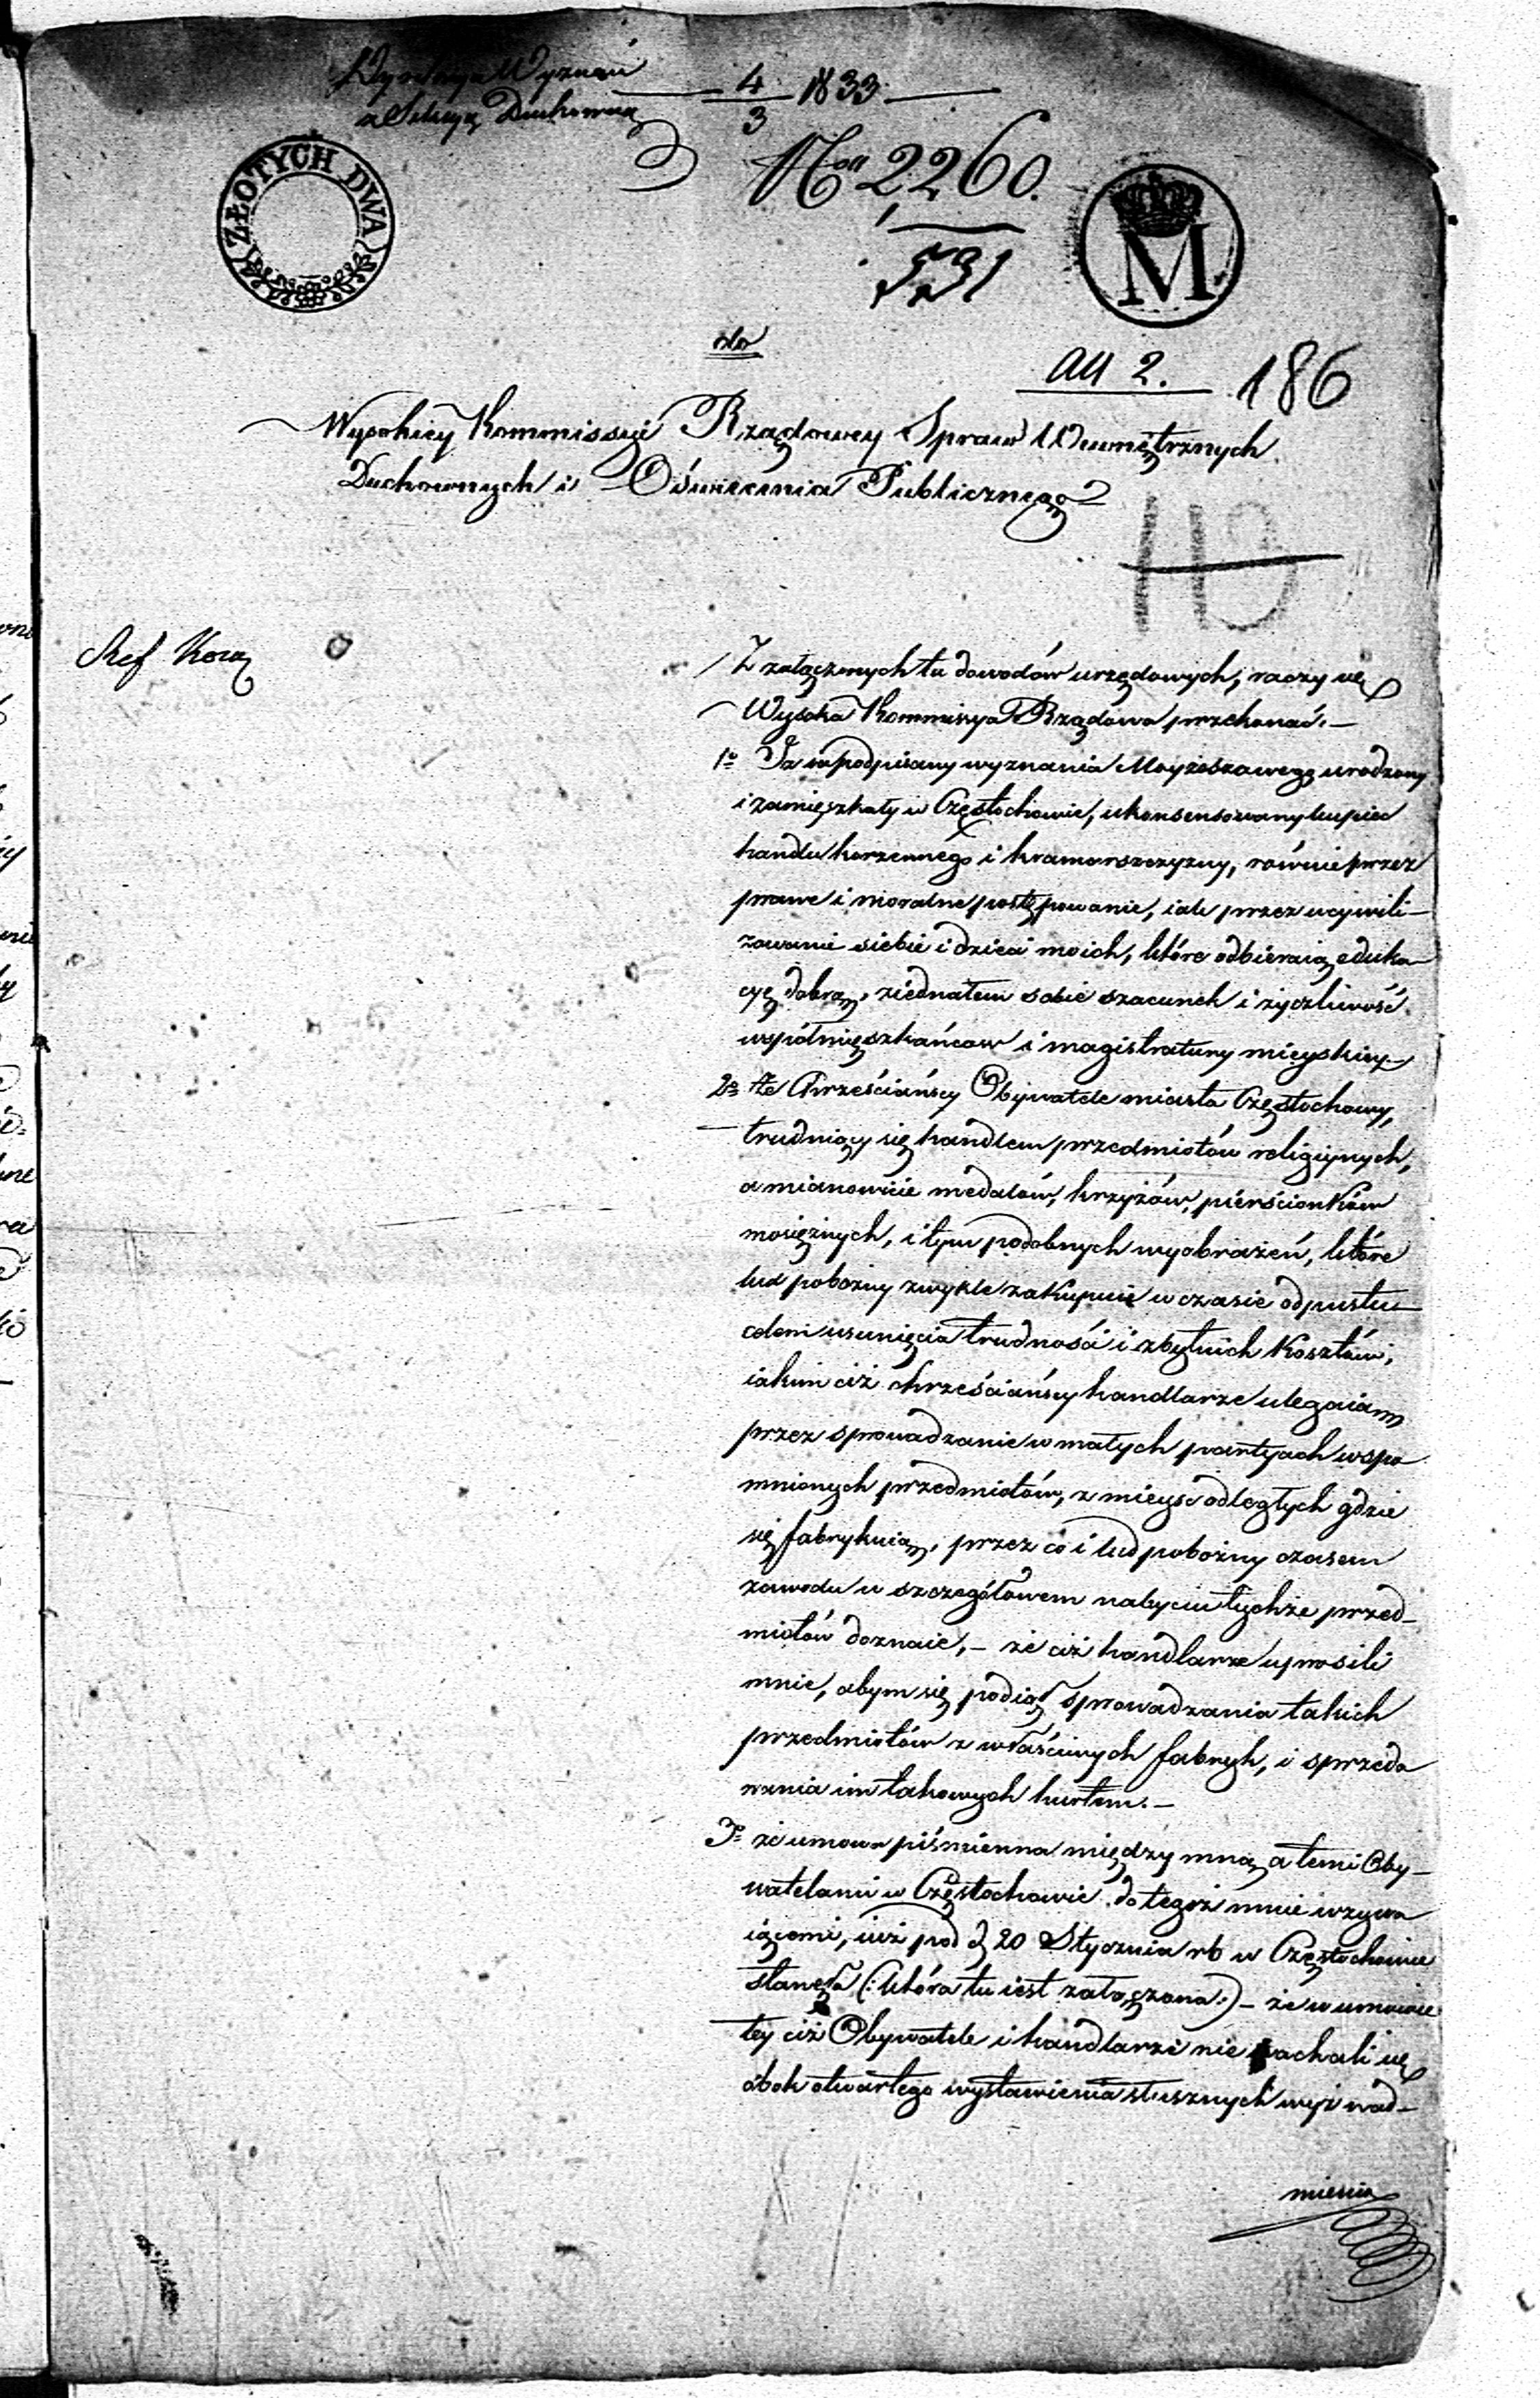 Wydział Wyznań
a Sekcyą Duchowną
4/3 1833
No 2260.
531
ZŁOTYCH DWA
M
do
all 2. 186
Wysokiey Kommissyi Rządowey Spraw Wewnętrznych
Duchownych i Oświecenia Publicznego
Ref
Z załączonych tu dowodów urzędowych, raczy się
Wysoka Kommissya Rządowa przekonać. —
1o Iż podpisany wyznania Moyżeszowego urodzony
i zamięszkały w Częstochowie, ukonsensowany kupiec
handlu korzennego i kramarszczyzny, równie przez
prawe i moralne postępowanie, iak przez ucywili-
zowanie siebie i dzieci moich, które odbieraią eduka-
cyę dobrą, ziednałem sobie szacunek i życzliwość
współmięszkańców i magistratury mieyskiey —
2o że Chrześciańscy Obywatele miasta Częstochowy,
trudniący się handlem przedmiotów religiynych,
a mianowicie medalów, krzyżów, pierścionków
mosiężnych, i tym podobnych wyobrażeń, które
lud pobożny zwykle zakupuie w czasie odpustu
celem usunięcia trudności i zbytnich kosztów,
iakim ciż chrześciańscy handlarze ulegaią
przez sprowadzanie w małych partyach wspo
mnionych przedmiotów, z mieysc odległych gdzie
się fabrykuią, przez co i lud pobożny czasem
zawodu w szczegółowem nabyciu tychże przed-
miotów doznaie, — że ciż handlarze uprosili
mnie, abym się podiął sprowadzania takich
przedmiotów z właściwych fabryk, i sprzeda
wania im takowych hurtem. —
3o że umowa piśmienna między mną a temi Oby-
watelami w Częstochowie do tegoż mnie wzywa
iącemi, iuż pod d 20 Stycznia rb w Częstochowie
stanęła (: która tu iest załączona :) — że w umowie
tey ciż Obywatele i handlarze nie wachali się
obok otwartego wystawienia słusznych wyż nad-
mienia